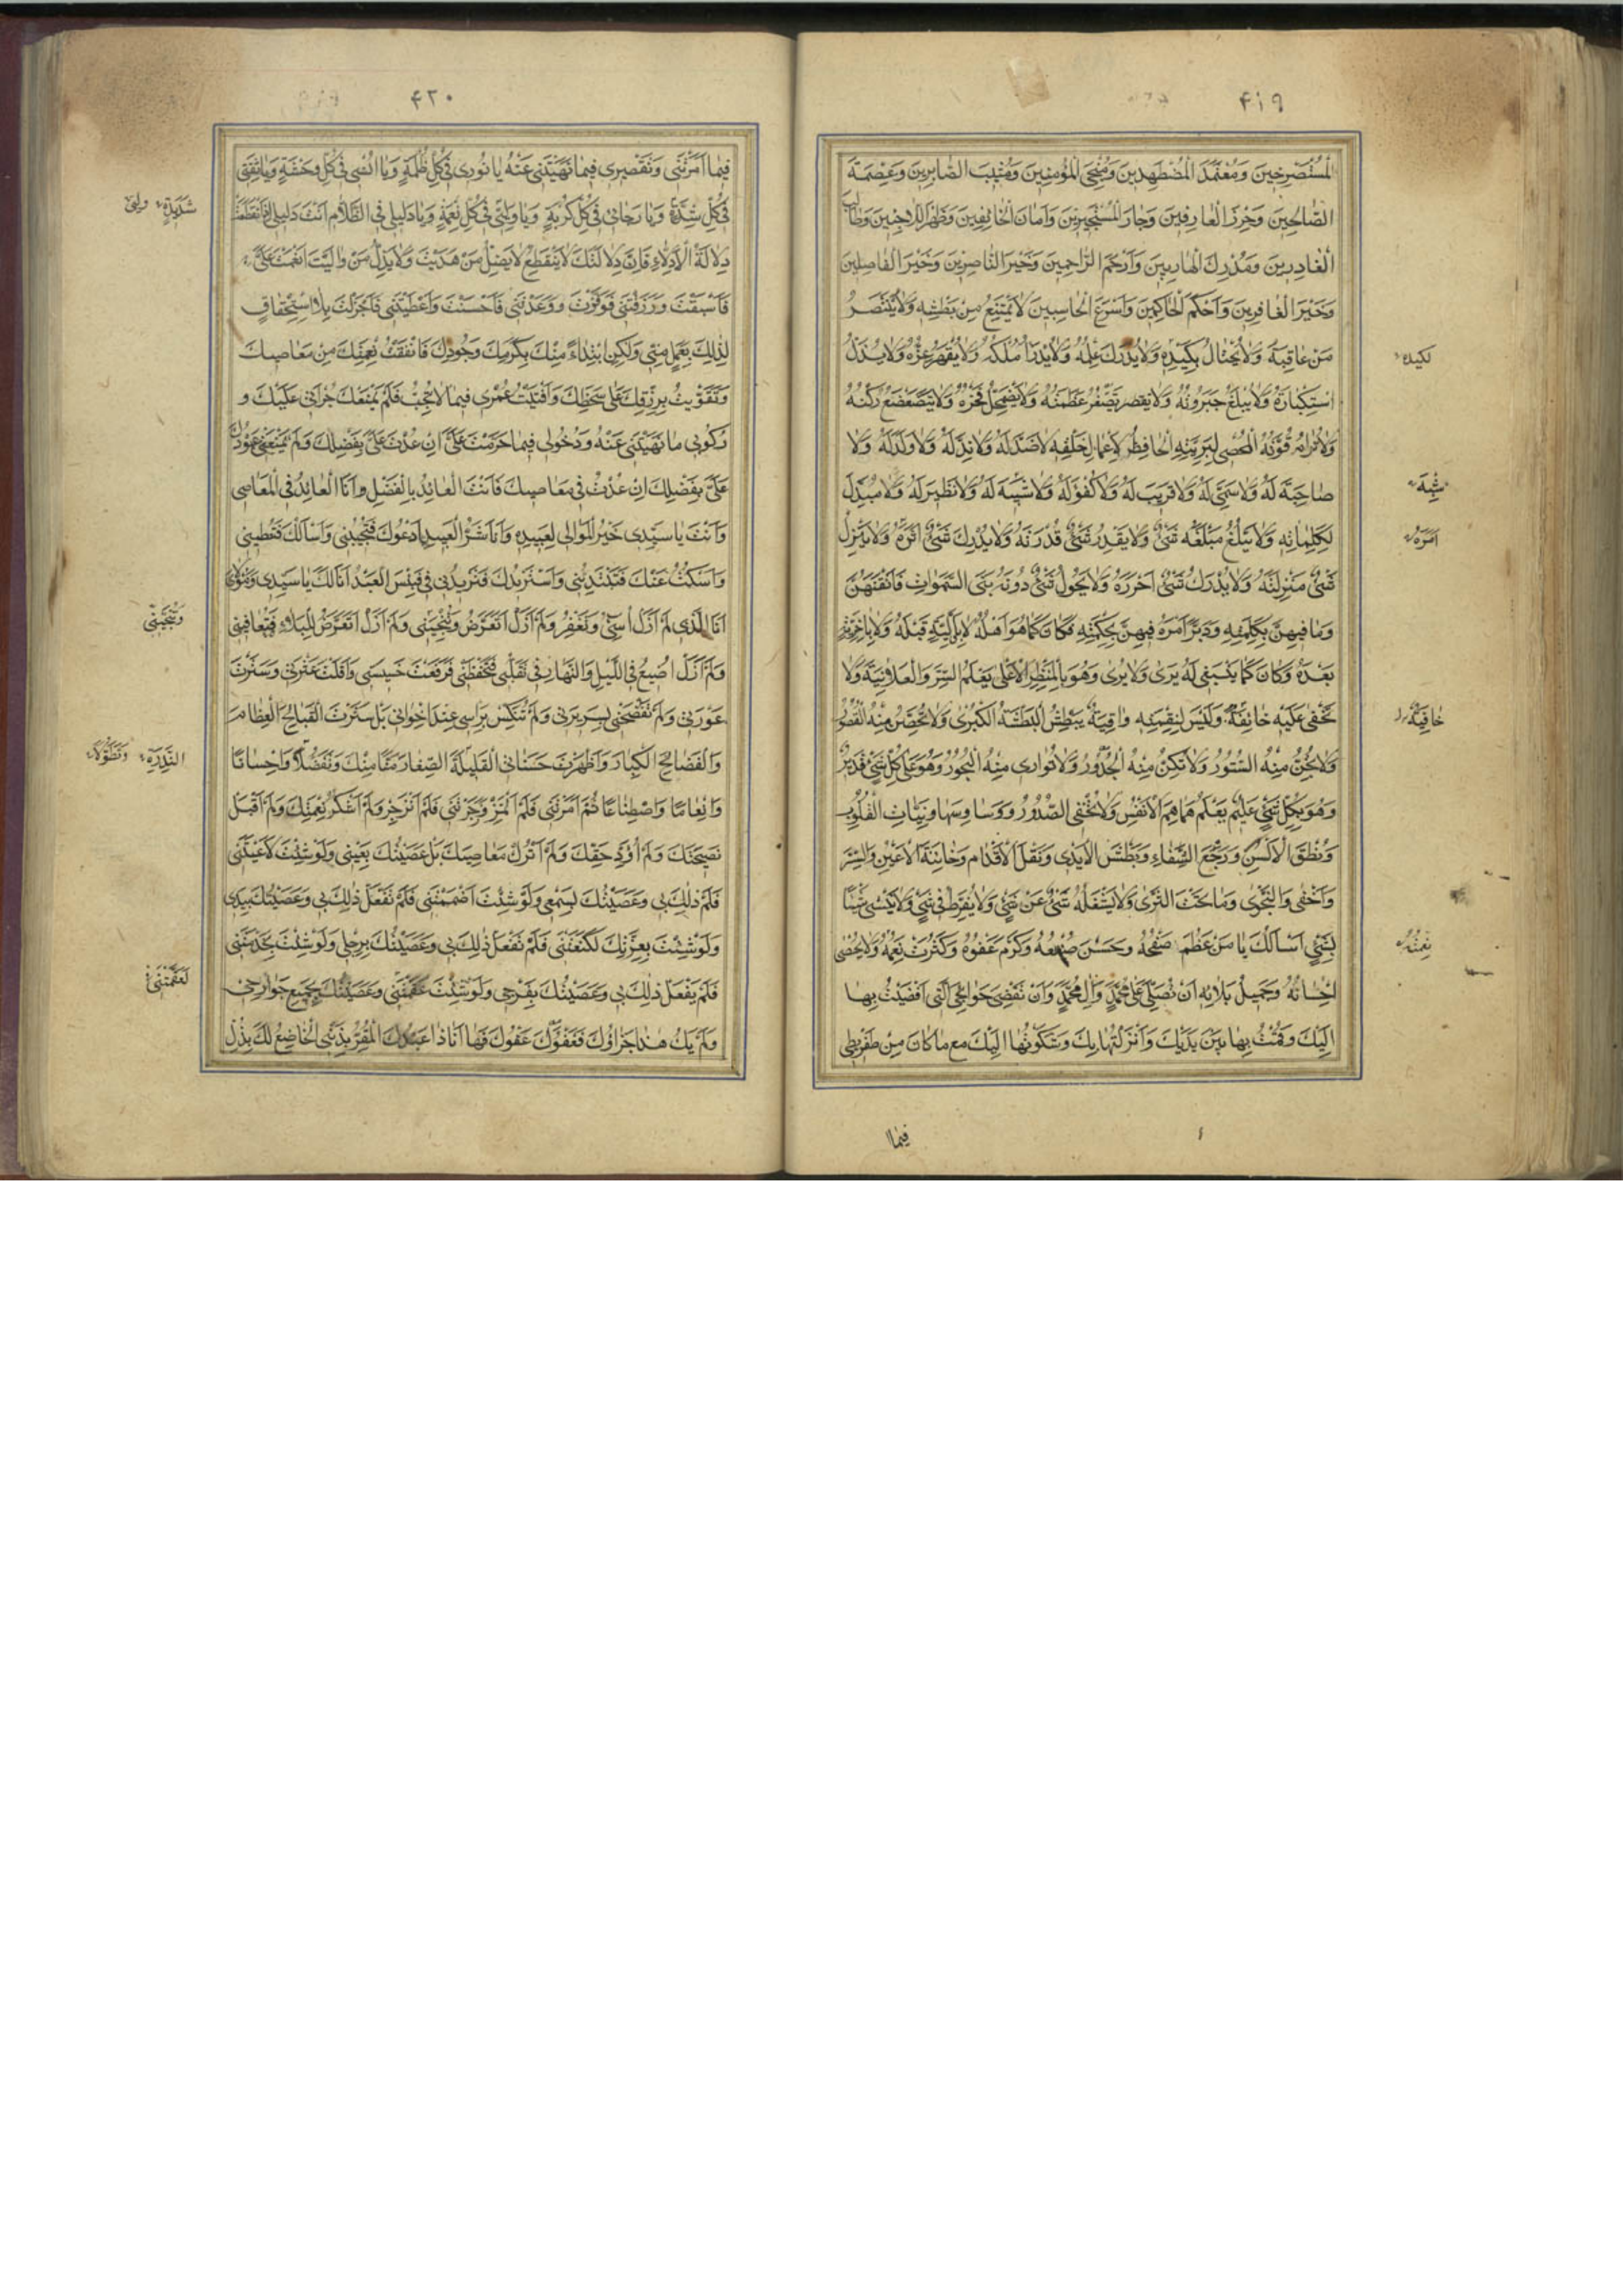 ۴۱۹
المُسْتَصْرِخينَ وَمُعْتَمَدَ الْمُضْطَهَدينَ وَمُنْجِىَ الْمُؤْمِنينَ وَمُثيبَ الصّابِرينَ وَعِصْمَةَ
الصّالِحينَ وَحِرْزَ الْعارِفينَ وَجارَ الْمُسْتَجيرينَ وَاَمانَ الْخائِفينَ وَظَهْرَ اللّاجينَ وَطالِبَ
الْغادِرينَ وَمُدْرِكَ الْهارِبينَ وَاَرْحَمَ الرّاحِمينَ وَخَيْرَ النّاصِرينَ وَخَيْرَ الْفاصِلينَ
وَخَيْرَ الْغافِرينَ وَاَحْكَمَ الْحاكِمينَ وَاَسْرَعَ الْحاسِبينَ لا يَمْتَنِعُ مِنْ بَطْشِهِ وَلا يَنْتَصِرُ
مَنْ عاقَبَهُ وَلا يُحْتالُ بِكَيْدِهِ وَلا يُدْرَكُ عِلْمُهُ وَلا يُدْرَأُ مُلْكُهُ وَلا يُقْهَرُ عِزُّهُ وَلا يُذَلُّ
لكيده
اسْتِكْبارُهُ وَلا يُبْلَغُ جَبَرُوتُهُ وَلا تَصْغُرُ عَظَمَتُهُ وَلا يَضْمَحِلُّ فَخْرُهُ وَلا يَتَضَعْضَعُ رُكْنُهُ
وَلا تُرامُ قُوَّتُهُ الْمُحْصى لِبَرِيَّتِهِ الْحافِظُ لِاَعْمالِ خَلْقِهِ لا ضِدَّ لَهُ وَلا نِدَّ لَهُ وَلا وَلَدَ لَهُ وَلا
صاحِبَةَ لَهُ وَلا سَمِىَّ لَهُ وَلا قَريبَ لَهُ وَلا كُفْوَ لَهُ وَلا شَبيهَ لَهُ وَلا نَظيرَ لَهُ وَلا مُبَدِّلَ
شِبْهَ
لِكَلِماتِهِ وَلا يَبْلُغُ مَبْلَغَهُ شَىْءٌ وَلا يَقْدِرُ شَىْءٌ قُدْرَتَهُ وَلا يُدْرِكُ شَىْءٌ اَثَرَهُ وَلا يَنْزِلُ
اَمْرَهُ
شَىْءٌ مَنْزِلَتَهُ وَلا يُدْرَكُ شَىْءٌ اَحْرَزَهُ وَلا يَحُولُ شَىْءٌ دُونَهُ بَنَى السَّمٰواتِ فَاَتْقَنَهُنَّ
وَما فيهِنَّ بِكَلِمَتِهِ وَدَبَّرَ اَمْرَهُ فيهِنَّ بِحِكْمَتِهِ فَكانَ كَما هُوَ اَهْلُهُ لا بِاَوَّلِيَّةٍ قَبْلَهُ وَلا بِاٰخِرِيَّةٍ
بَعْدَهُ وَكانَ كَما يَنْبَغى لَهُ يَرىٰ وَلا يُرىٰ وَهُوَ بِالْمَنْظَرِ الْاَعْلىٰ يَعْلَمُ السِّرَّ وَالْعَلانِيَةَ وَلا
تَخْفىٰ عَلَيْهِ خافِيَةٌ وَلَيْسَ لِنِقْمَتِهِ واقِيَةٌ يَبْطِشُ الْبَطْشَةَ الْكُبْرىٰ وَلا تُحَصِّنُ مِنْهُ الْقُصُورُ
خافِيَةٌ
وَلا تُجِنُّ مِنْهُ السُّتُورُ وَلا تُكِنُّ مِنْهُ الْجُدُورُ وَلا تُوارى مِنْهُ الْبُحُورُ وَهُوَ عَلىٰ كُلِّ شَىْءٍ قَديرٌ
وَهُوَ بِكُلِّ شَىْءٍ عَليمٌ يَعْلَمُ هَماهِمَ الْاَنْفُسِ وَما تُخْفِى الصُّدُورُ وَوَساوِسَها وَنِيّاتِ الْقُلُوبِ
وَنُطْقَ الْاَلْسُنِ وَرَجْعَ الشِّفاهِ وَبَطْشَ الْاَيْدى وَنَقْلَ الْاَقْدامِ وَخائِنَةَ الْاَعْيُنِ وَالسِّرَّ
وَاَخْفىٰ وَالنَّجْوىٰ وَما تَحْتَ الثَّرىٰ وَلا يَشْغَلُهُ شَىْءٌ عَنْ شَىْءٍ وَلا يُفَرِّطُ فى شَىْءٍ وَلا يَنْسىٰ شَيْئًا
لِشَىْءٍ اَسْاَلُكَ يا مَنْ عَظُمَ صَفْحُهُ وَحَسُنَ صُنْعُهُ وَكَرُمَ عَفْوُهُ وَكَثُرَتْ نِعَمُهُ وَلا يُحْصىٰ
نِعْمَتُهُ
اِحْسانُهُ وَجَميلُ بَلائِهِ اَنْ تُصَلِّىَ عَلىٰ مُحَمَّدٍ وَاٰلِ مُحَمَّدٍ وَاَنْ تَقْضِىَ حَوائِجِى الَّتى اَفْضَيْتُ بِها
اِلَيْكَ وَقُمْتُ بِها بَيْنَ يَدَيْكَ وَاَنْزَلْتُها بِكَ وَشَكَوْتُها اِلَيْكَ مَعَ ما كانَ مِنْ تَفْريطى
فيما
۴۲۰
فيما اَمَرْتَنى وَتَقْصيرى فيما نَهَيْتَنى عَنْهُ يا نُورى فى كُلِّ ظُلْمَةٍ وَيا اُنْسى فى كُلِّ وَحْشَةٍ وَيا ثِقَتى
فى كُلِّ شِدَّةٍ وَيا رَجائى فى كُلِّ كُرْبَةٍ وَيا وَلِيّى فى كُلِّ نِعْمَةٍ وَيا دَليلى فى الظَّلامِ اَنْتَ دَليلى اِذَا انْقَطَعَتْ
شَديدَةٍ
دِلالَةُ الْاَدِلّاءِ فَاِنَّ دِلالَتَكَ لا تَنْقَطِعُ لا يَضِلُّ مَنْ هَدَيْتَ وَلا يَذِلُّ مَنْ والَيْتَ اَنْعَمْتَ عَلَىَّ
فَاَسْبَغْتَ وَرَزَقْتَنى فَوَفَّرْتَ وَوَعَدْتَنى فَاَحْسَنْتَ وَاَعْطَيْتَنى فَاَجْزَلْتَ بِلا اسْتِحْقاقٍ
لِذٰلِكَ بِعَمَلٍ مِنّى وَلٰكِنِ ابْتِداءً مِنْكَ بِكَرَمِكَ وَجُودِكَ فَاَنْفَقْتُ نِعَمَكَ فى مَعاصيكَ
وَتَقَوَّيْتُ بِرِزْقِكَ عَلىٰ سَخَطِكَ وَاَفْنَيْتُ عُمْرى فيما لا تُحِبُّ فَلَمْ يَمْنَعْكَ جُرْاَتى عَلَيْكَ وَ
رُكُوبى ما نَهَيْتَنى عَنْهُ وَدُخُولى فيما حَرَّمْتَ عَلَىَّ اَنْ عُدْتَ عَلَىَّ بِفَضْلِكَ وَلَمْ يَمْنَعْنى عَوْدُكَ
عَلَىَّ بِفَضْلِكَ اَنْ عُدْتُ فى مَعاصيكَ فَاَنْتَ الْعائِدُ بِالْفَضْلِ وَاَنَا الْعائِدُ فى الْمَعاصى
وَاَنْتَ يا سَيِّدى خَيْرُ الْمَوالى لِعَبيدِهِ وَاَنَا شَرُّ الْعَبيدِ اَدْعُوكَ فَتُجيبُنى وَاَسْاَلُكَ فَتُعْطينى
وَاَسْكُتُ عَنْكَ فَتَبْتَدِئُنى وَاَسْتَزيدُكَ فَتَزيدُنى فَبِئْسَ الْعَبْدُ اَنَا لَكَ يا سَيِّدى وَمَوْلاىَ
اَنَا الَّذى لَمْ اَزَلْ اُسىءُ وَتَغْفِرُ وَلَمْ اَزَلْ اَتَعَرَّضُ وَتُنْجينى وَلَمْ اَزَلْ اَتَعَرَّضُ لِلْبَلاءِ فَتُعافينى
وَلَمْ اَزَلْ اُضيعُ فى اللَّيْلِ وَالنَّهارِ فى تَقَلُّبى فَتَحْفَظُنى فَرَفَعْتَ خَسيسَتى وَاَقَلْتَ عَثْرَتى وَسَتَرْتَ
عَوْرَتى وَلَمْ تَفْضَحْنى بِسَريرَتى وَلَمْ تُنَكِّسْ بِرَاْسى عِنْدَ اِخْوانى بَلْ سَتَرْتَ الْقَبائِحَ الْعِظامَ
وَالْفَضائِحَ الْكِبارَ وَاَظْهَرْتَ حَسَناتى الْقَليلَةَ الصِّغارَ مَنًّا مِنْكَ وَتَفَضُّلًا وَاِحْسانًا
وَاِنْعامًا وَاصْطِناعًا ثُمَّ اَمَرْتَنى فَلَمْ اَئْتَمِرْ وَزَجَرْتَنى فَلَمْ اَنْزَجِرْ وَلَمْ اَشْكُرْ نِعْمَتَكَ وَلَمْ اَقْبَلْ
نَصيحَتَكَ وَلَمْ اُؤَدِّ حَقَّكَ وَلَمْ اَتْرُكْ مَعاصيكَ بَلْ عَصَيْتُكَ بِعَيْنى وَلَوْ شِئْتَ لَاَعْمَيْتَنى
فَلَمْ تَفْعَلْ ذٰلِكَ بى وَعَصَيْتُكَ بِسَمْعى وَلَوْ شِئْتَ اَصْمَمْتَنى فَلَمْ تَفْعَلْ ذٰلِكَ بى وَعَصَيْتُكَ بِيَدى
وَلَوْ شِئْتَ بِعِزَّتِكَ لَكَنَّعْتَنى فَلَمْ تَفْعَلْ ذٰلِكَ بى وَعَصَيْتُكَ بِرِجْلى وَلَوْ شِئْتَ جَذَمْتَنى
فَلَمْ تَفْعَلْ ذٰلِكَ بى وَعَصَيْتُكَ بِفَرْجى وَلَوْ شِئْتَ عَقَمْتَنى وَعَصَيْتُكَ بِجَميعِ جَوارِحى
لَعَقَمْتَنى
وَلَمْ يَكُ هٰذا جَزاؤُكَ فَعَفْوَكَ عَفْوَكَ فَها اَنَا ذا عَبْدُكَ الْمُقِرُّ بِذَنْبى الْخاضِعُ لَكَ بِذُلّى